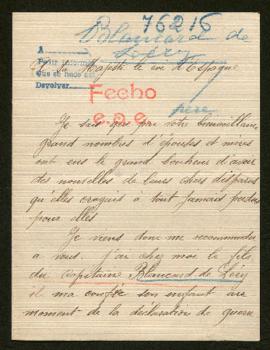 76216
Blancard de
Léry
A
Pedir informe
Que se hace así
Devolver
Sa Majesté le roi d'Espagne
Fecho
e.o.e.
père
Je sais que par votre bienveillance
grand nombres d'épouses et mères
ont eus le grand bonheur d'avoir
des nouvelles de leurs chers disparus
qu'elles croyait à tout jamais perdus
pour elles
Je viens donc me recommander
a vous. J'ai chez moi le fils
du Capitaine Blancard de Léry
il m'a confié son enfant au
moment de la déclaration de guerre